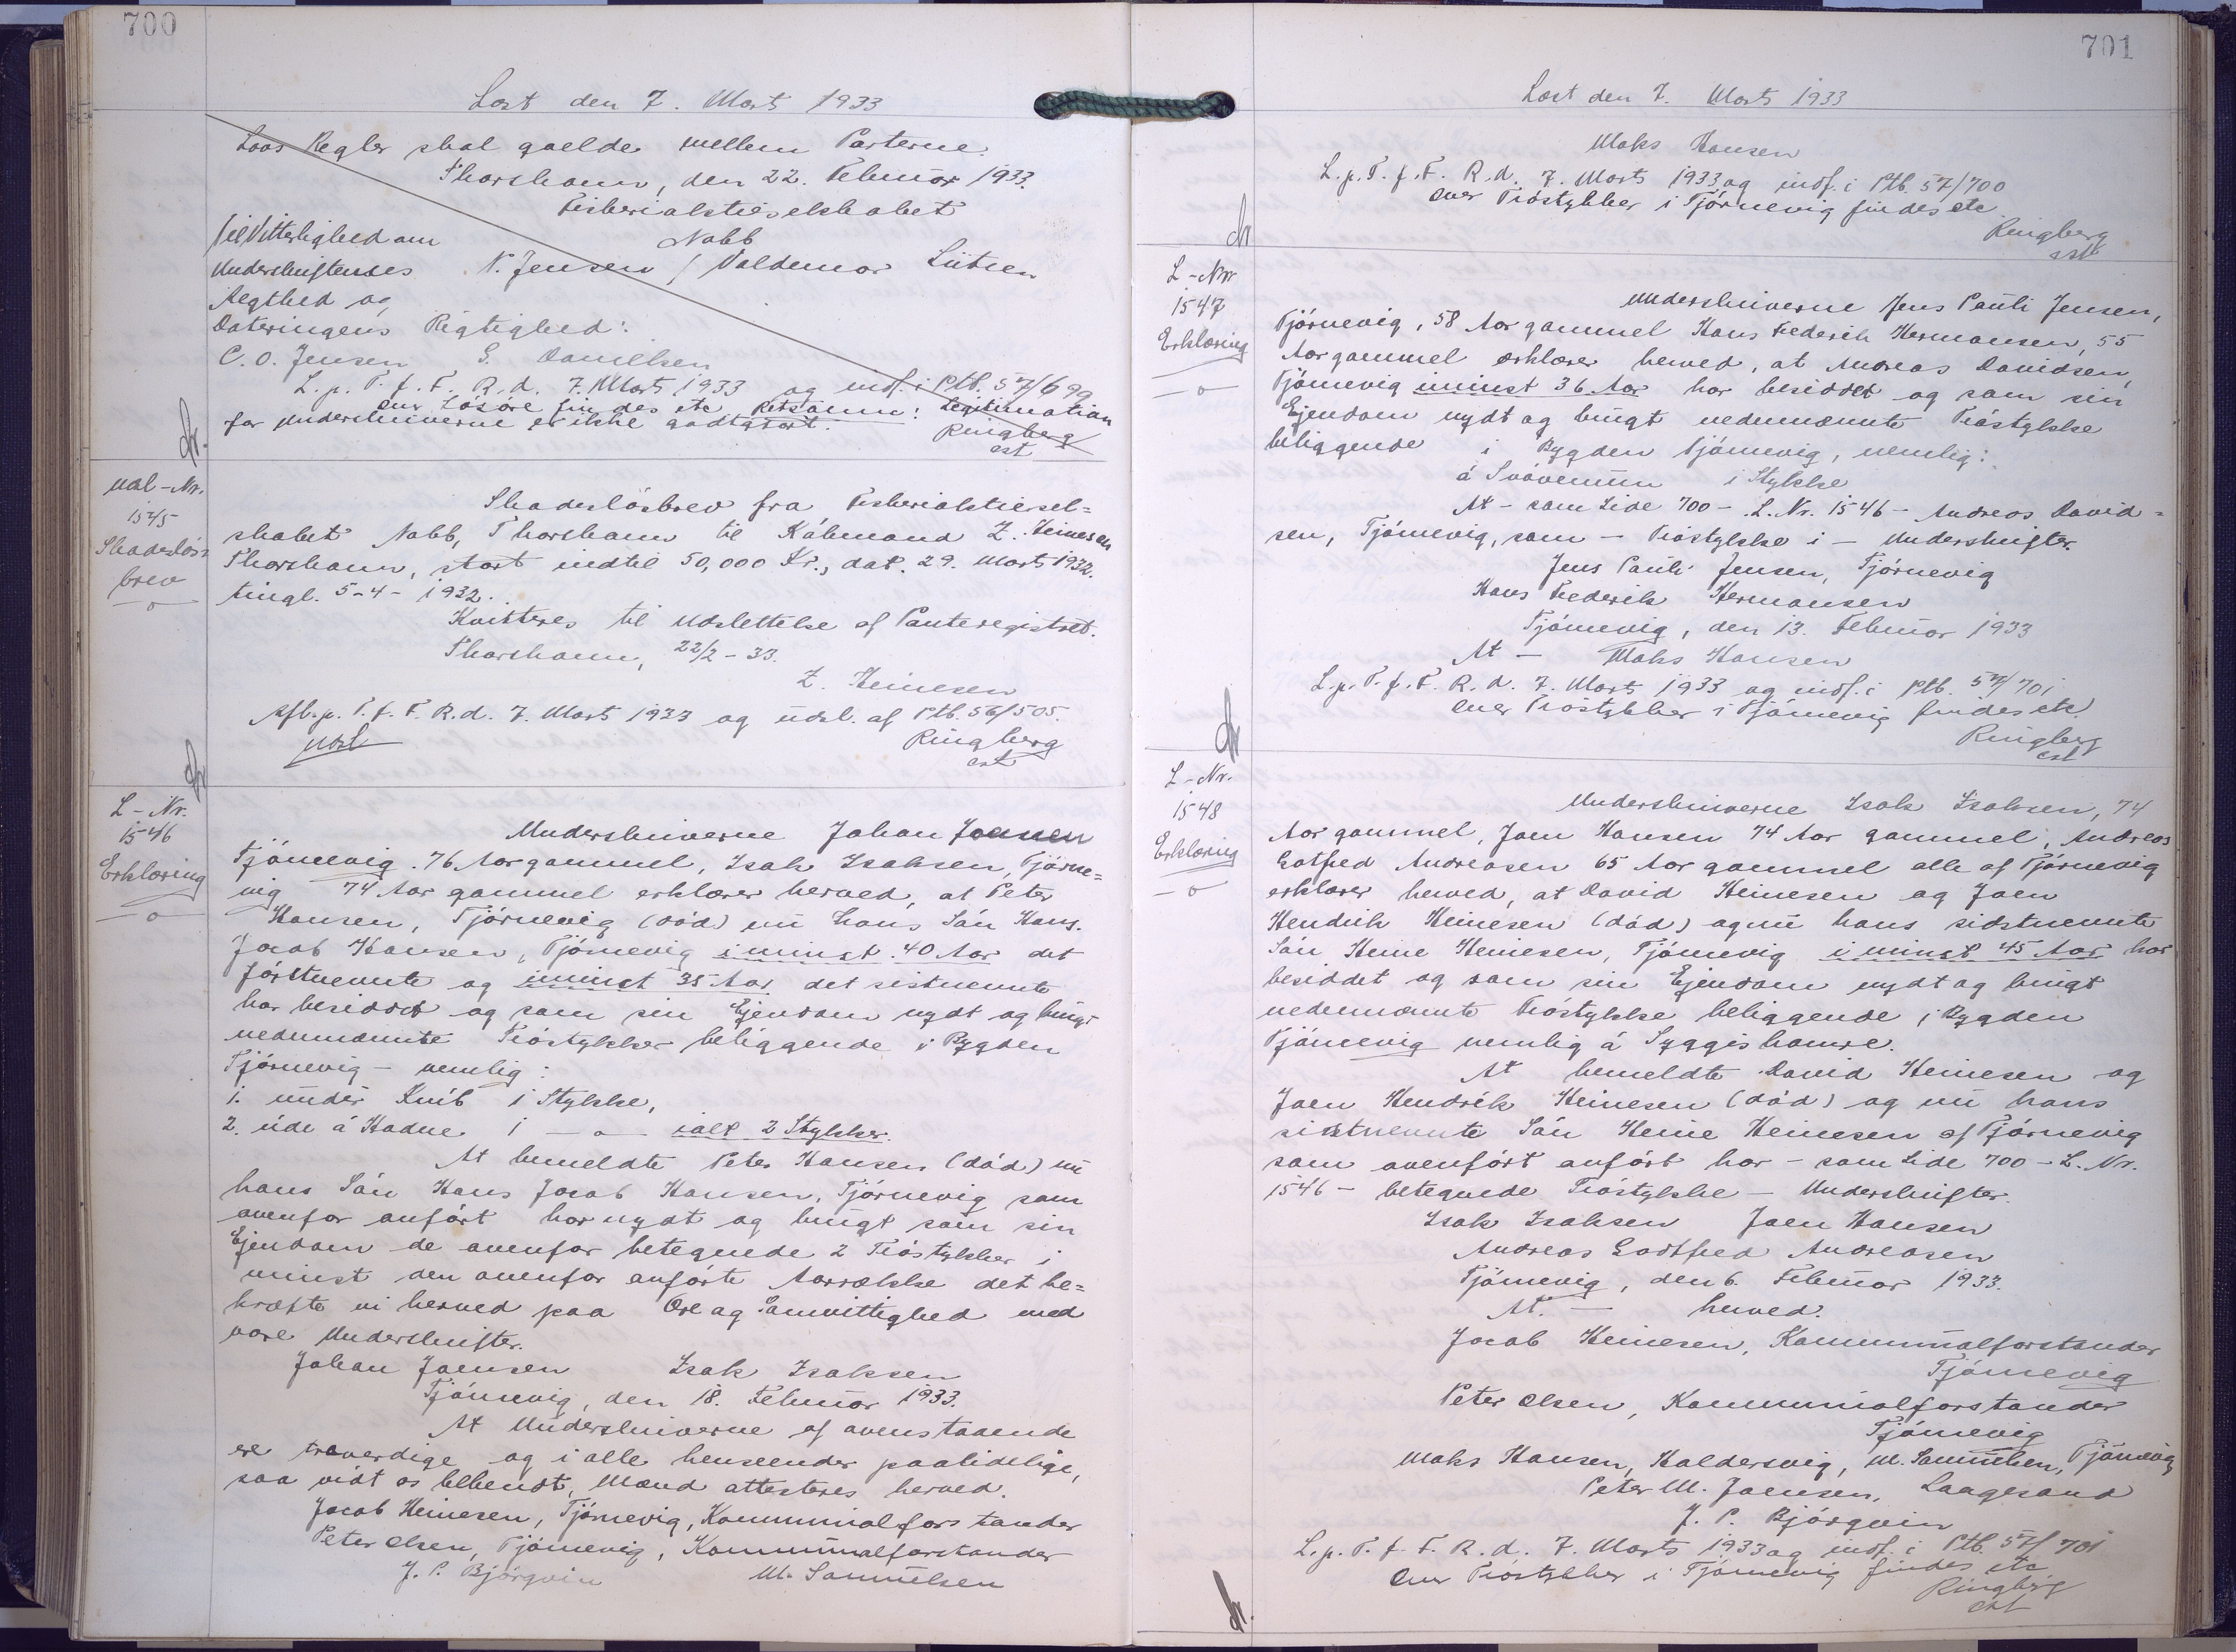 700
Læst den 7. Marts 1933
Laas Regler skal gælde mellem Parterne.
Thorshavn, den 22. Februar 1933.
Fiskeriaktieselskabet
Nabb
Til Vitterlighed om
Underskrifternes N. Jensen / Valdemar Lützen
Ægthed og
Dateringens Rigtighed:
C. O. Jensen S. Danielsen
L. p. T. f. F. R. d. 7. Marts 1933 og indf. i Ptb. 57/699
over Lösöre findes etc Retsanm: Legitimation
for Underskriverne er ikke godtgjort.
Ringberg
cst
Udl-Nr.
1545
Skadeslös-
brev
Skadeslösbrev fra Fiskeriaktiesel=
skabet Nabb, Thorshavn til Kåbmand Z. Heinesen
Thorshavn, stort indtil 50,000 Kr., dat. 29. Marts 1932.
tingl. 5-4-1932.
Kvitteres til Udslettelse af Panteregistret.
Thorshavn, 22/2-33.
Z. Heinesen
Afl. p. T. f. F. R. d. 7. Marts 1933 og udsl. af Ptb. 56/505.
udsl
Ringberg
cst
L-Nr.
1546
Erklæring
Underskriverne Johan Joensen
Tjórnevig. 76 Aar gammel, Isak Isaksen, Tjörne=
vig 74 Aar gammel erklærer herved, at Peter
Hansen, Tjörnevig (död) nu hans Sön Hans.
Jacob Hansen, Tjörnevig i minst 40 Aar det
förstnevnte og i minst 35 Aar det sistnevnte
har besiddet og som sin Ejendom nydt og brugt
nedennævnte Tröstykker beliggende i Bygden
Tjörnevig - nemlig:
1. under Knib 1 Stykke,
2. úde á Hadne 1 -o- ialt 2 Stykker.
At bemeldte Peter Hansen (död) nu
hans Sön Hans Jacob Hansen, Tjörnevig som
ovenfor anfört har nydt og brugt som sin
Ejendom de ovenfor betegnede 2 Tröstykker i
minst den ovenfor anförte Aarrække det be=
kræfte vi herved paa Ære og Samvittighed med
vore Underskrifter.
Johan Joensen Isak Isaksen
Tjörnevig, den 18. Februar 1933.
At Underskriverne af ovenstaaende
ere troverdige og i alle henseender paalidelige,
saa vidt os bekendt, Mænd attesteres herved.
Jacob Heinesen, Tjörnevig, Kommunalforstander
Peter Olsen, Tjörnevig, Kommunalforstander
J. P. Bjórgvin M. Samuelsen
701
Læst den 7. Marts 1933
Maks Hansen
L. p. T. f. F. R. d. 7. Marts 1933 og indf. i Ptb. 57/700
over Tröstykker i Tjörnevig findes etc
Ringberg
cst
L-Nr
1547
Erklæring
Underskriverne Jens Pauli Jensen,
Tjörnevig, 58 Aar gammel Hans Frederik Hermansen, 55
Aar gammel erklærer herved, at Andreas Davidsen,
Tjörnevig i minst 36 Aar har besiddet og som sin
Ejendom nydt og brugt nedennævnte Tröstykke
beliggende i Bygden Tjörnevig, nemlig:
1 Stykke
At - som Side 700 - L. Nr. 1546 - Andreas David=
sen, Tjörnevig, som - Tröstykke i - Underskrifter.
Jens Pauli Jensen, Tjörnevig
Hans Frederik Hermansen
Tjörnevig, den 13. Februar 1933
At - Maks Hansen
L. p. T. f. F. R. d. 7. Marts 1933 og indf. i Ptb. 57/701
over Tröstykker i Tjörnevig findes etc.
Ringberg
cst
L-Nr.
1548
Erklæring
Underskriverne Isak Isaksen, 74
Aar gammel, Joen Hansen 74 Aar gammel, Andreas
Gotfred Andreasen 65 Aar gammel alle af Tjörnevig
erklærer herved, at David Heinesen og Joen
Hendrik Heinesen (död) og nu hans sidstnevnte
Sön Heine Heinesen, Tjörnevig i minst 45 Aar har
besiddet og som sin Ejendom nydt og brugt
nedennævnte Tröstykke beliggende i Bygden
Tjörnevig nemlig á Syggishamre.
At bemeldte David Heinesen og
Joen Hendrik Heinesen (död) og nu hans
sidstnevnte Sön Heine Heinesen af Tjörnevig
som ovenfört anfört har - som Side 700 - L. Nr.
1546 - betegnede Tröstykke - Underskrifter.
Isak Isaksen Joen Hansen
Andreas Godtfred Andreasen
Tjörnevig, den 6. Februar 1933.
At. - herved.
Jacob Heinesen, Kommunalforstander
Tjörnevig
Peter Olsen, Kommunalforstander
Tjörnevig
Maks Hansen, Haldersvig, M. Samuelsen, Tjörnevig
Peter M. Joensen, Langesand
J. P. Bjórgvin
L. p. T. f. F. R. d. 7. Marts 1933 og indf. i Ptb. 57/701
over Tröstykker i Tjörnevig findes etc
Ringberg
cst